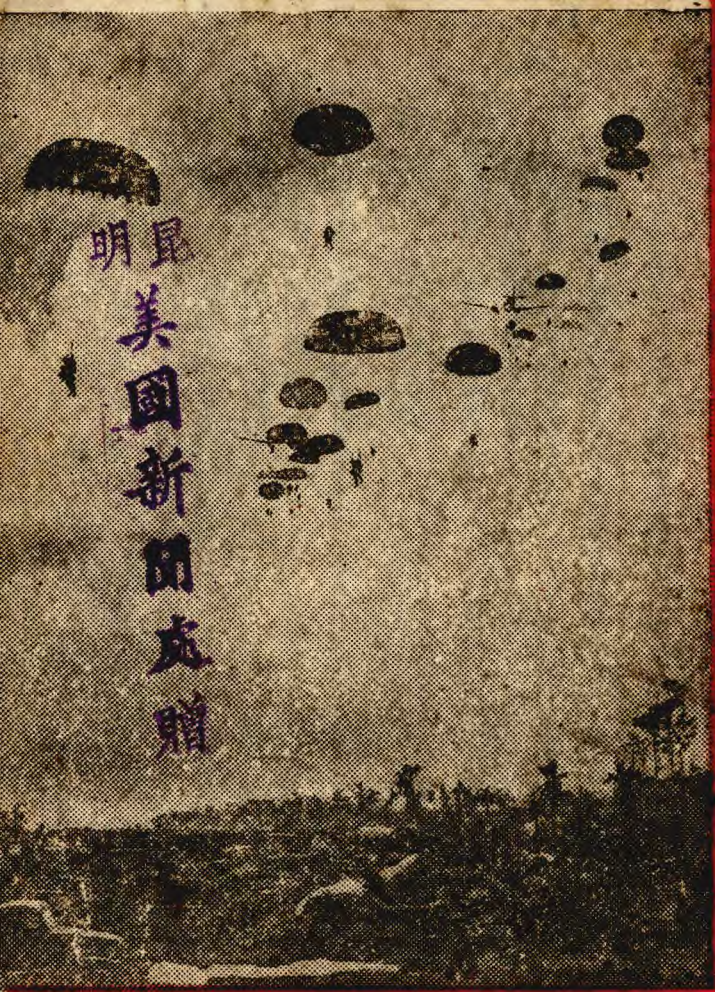 昆明
美國新聞處贈